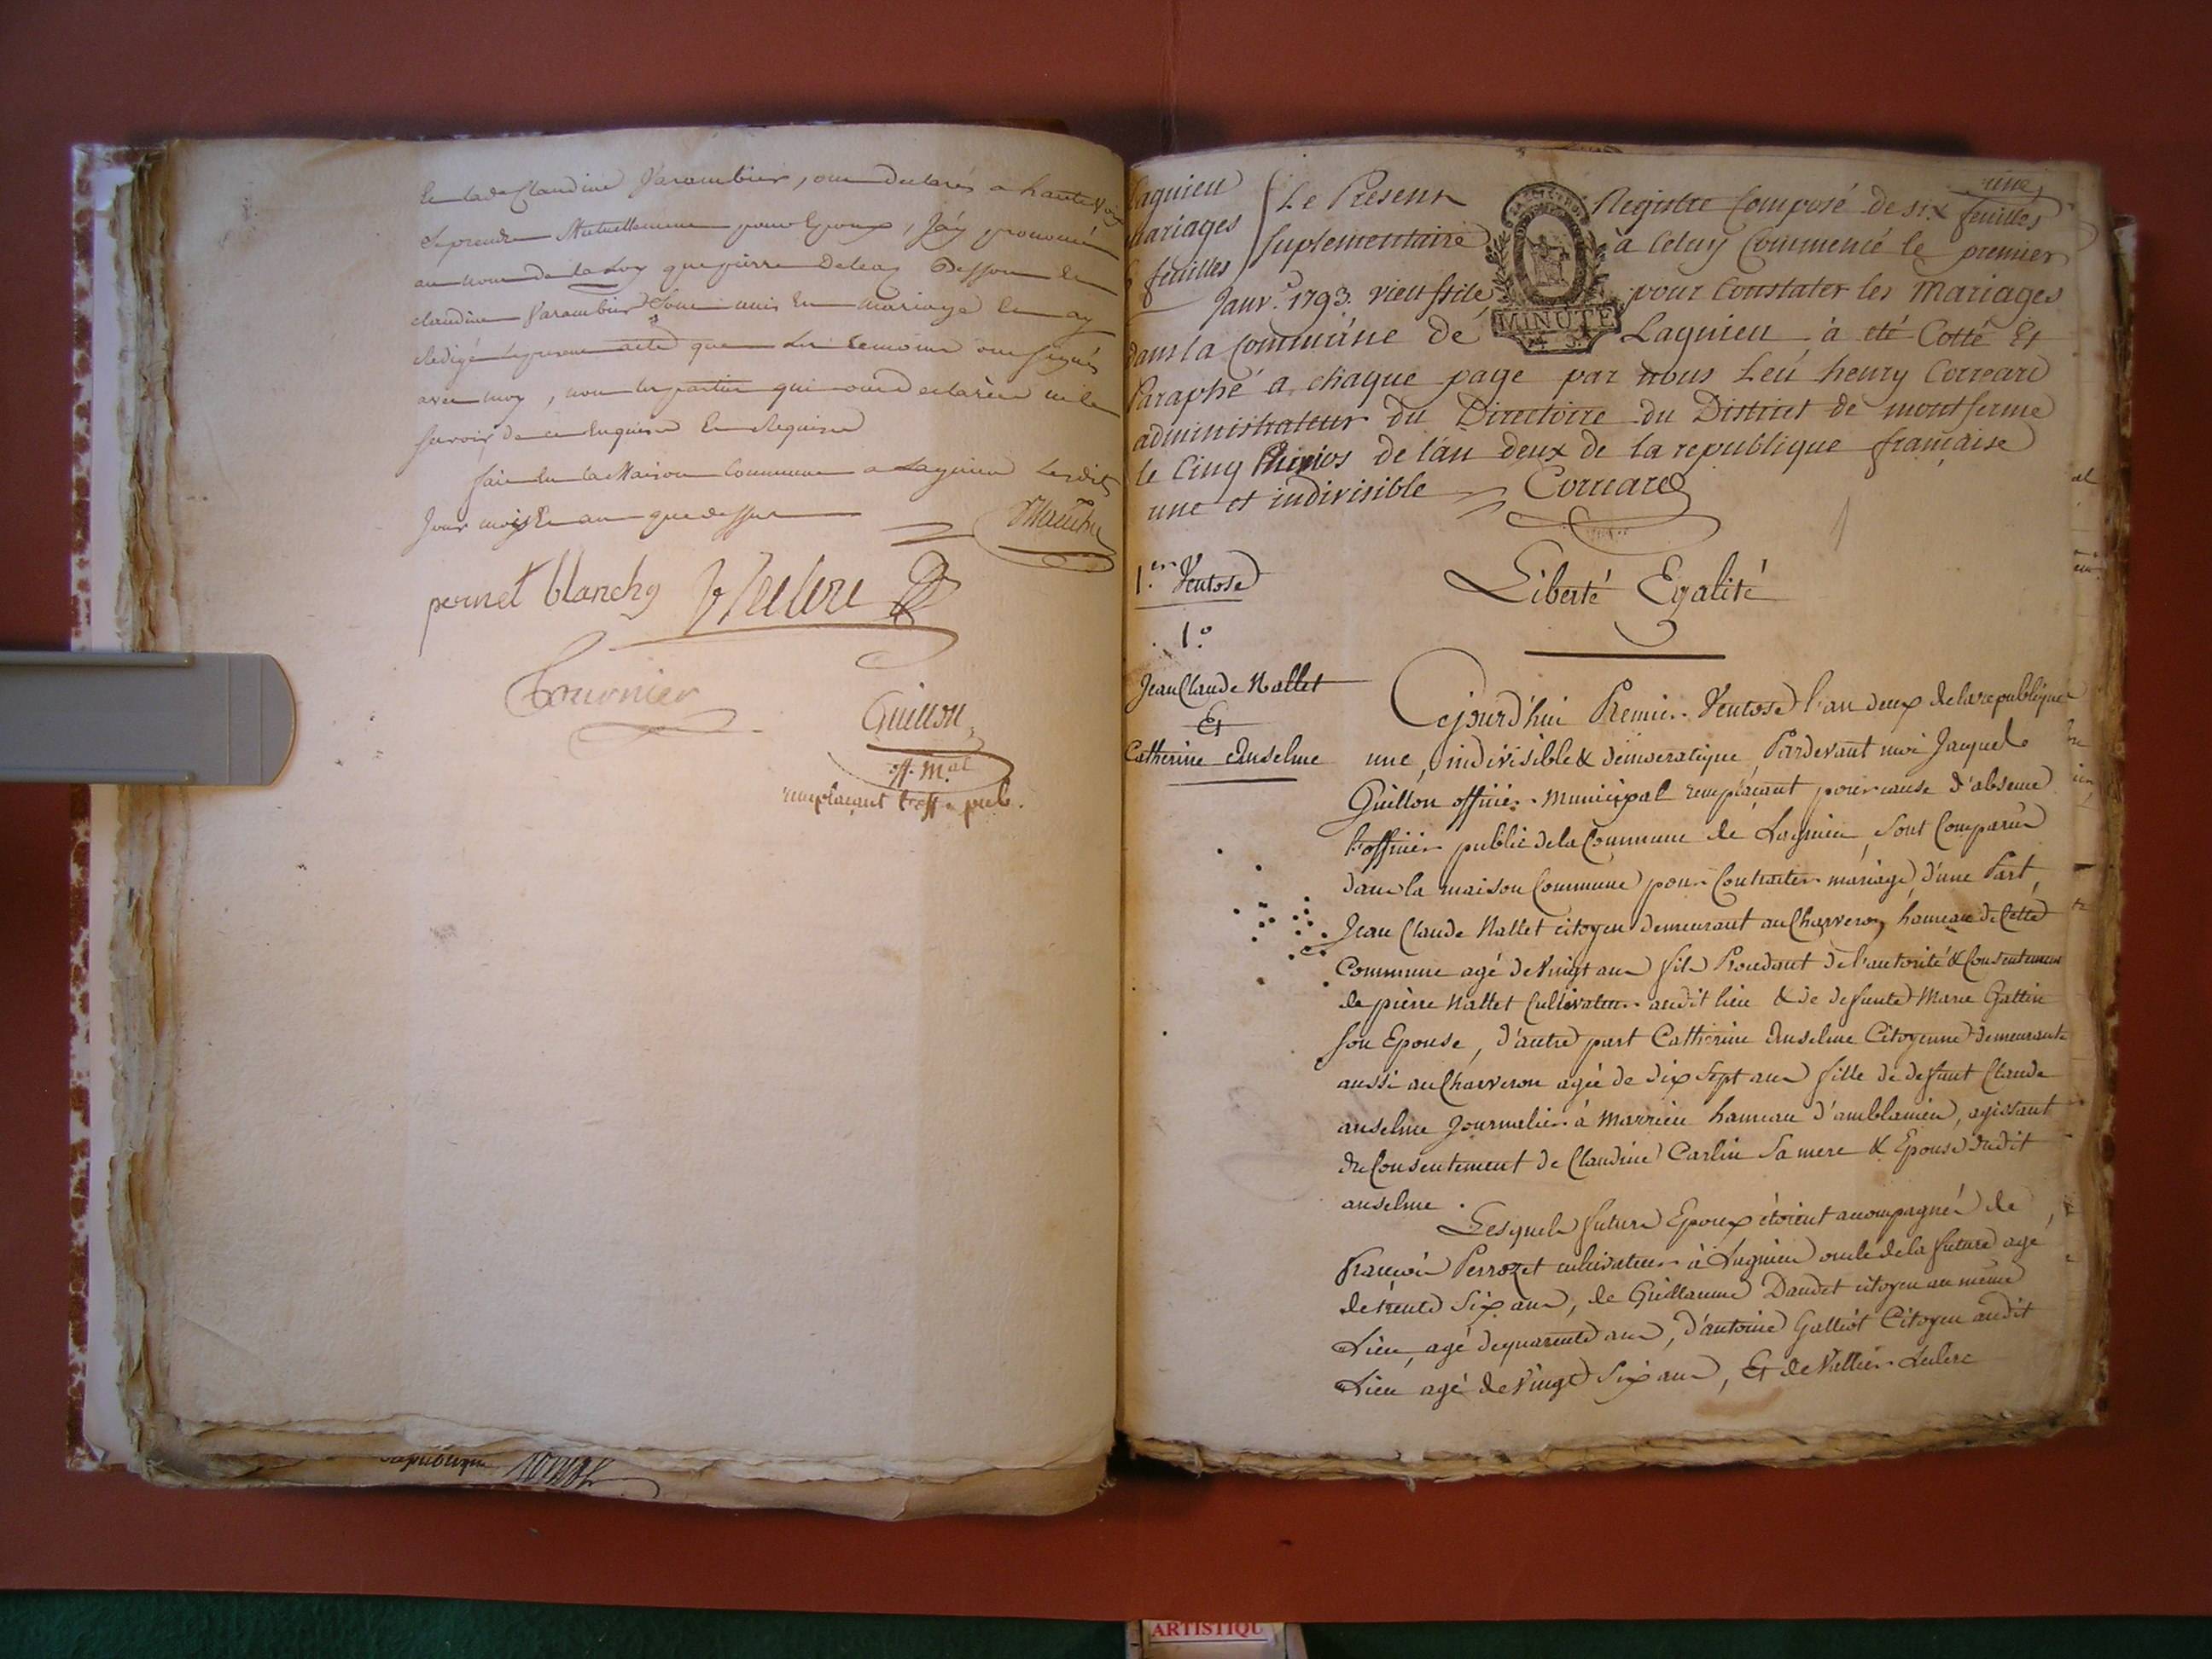 et lade Claudine Varambier, ont declarés a haute voix
se prendre Mutuellement pour Epoux, J'ay prononcé
au nom de la Loy que pierre Deleaz Dessous et
claudine Varambier sont unis En mariage Et ay
Redigé le present acte que les temoins ont signés
avec moy, non les parties qui ont declarées ne le
savoir de ce Enquises Et Requises
fait En la Maison Commune a Lagnieu lesdits
Jour mois Et an que dessus
pernet blanchy V Leclerc
Tournier
Guillon
off. M.al
remplaçant l'off. pub.
Republique
Lagnieu
mariages
6 feuilles
Le Présent Registre Composé de six feuilles
suplementaire à Celuy Commencé le premier
Janv. 1793. vieu stile, pour Constater les Mariages
MINUTE
dans la Commune de Lagnieu à été Cotté Et
Paraphé a chaque page par nous Leu henry Correard
administrateur du Directoire du District de montferme
le Cinq de l'an deux de la republique française
une et indivisible Correard
Liberté Egalité
1.er Ventose
1.o
Jean Claude Nallet
Et
Catherine Anselme
Cejourd'hui Premier Ventose l'an deux de la republique
une, indivisible & democratique, Pardevant moi Jacques
Guillon officier Municipal remplaçant pour cause d'absence
l'officier public de la Commune de Lagnieu, sont Comparus
dans la maison Commune pour Contracter mariage, d'une Part,
Jean Claude Nallet citoyen demeurant au Charveron hameau de Cette
Commune agé de Vingt ans fils Procédant de l'autorité & Consentement
de pierre Nallet Cultivateur audit lieu & de defunte Marie Gattin
son Epouse, d'autre part Catherine Anselme Citoyenne demeurante
aussi au Charveron agée de dix sept ans fille de defunt Claude
anselme Journalier à Marrieu hameau d'amblanieu, agissant
du Consentement de Claudine Carlin sa mere & Epouse dudit
anselme.
Lesquels futurs Epoux étoient accompagnés de
François Perrozet cultivateur à Lagnieu oncle de la future agé
de trente six ans, de Guillaume Daudet citoyen au même
Lieu, agé de quarente ans, d'antoine Galliot Citoyen audit
Lieu agé de Vingt six ans, Et de Vallier Leclerc
ARTISTIQU